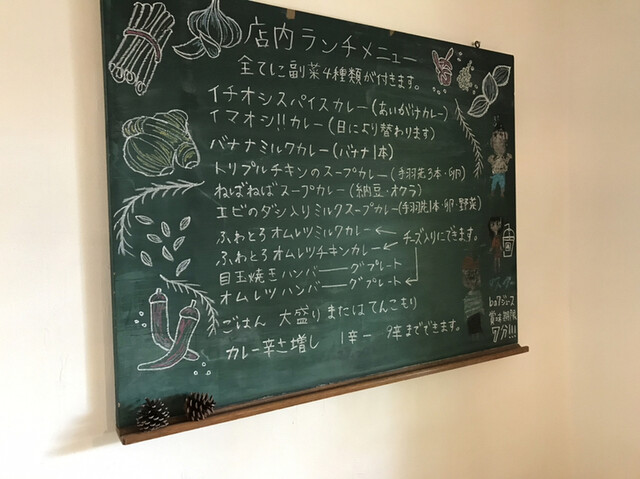 店内ランチメニュー
全てに副菜4種類が付きます。
イチオシスパイスカレー(あいがけカレー)
イマオシ!!カレー(日により替わります)
バナナミルクカレー(バナナ1本)
トリプルチキンのスープカレー(手羽先3本・卵)
ねばねばスープカレー(納豆・オクラ)
エビのダシ入りミルクスープカレー(手羽先1本・卵・野菜)
ふわとろオムレツミルクカレー
ふわとろオムレツチキンカレー
チーズ入りにできます。
目玉焼きハンバーグプレート
オムレツハンバーグプレート
ごはん 大盛りまたはてんこもり
カレー辛さ増し 1辛ー9辛までできます。
ジュース
賞味期限
7分!!!